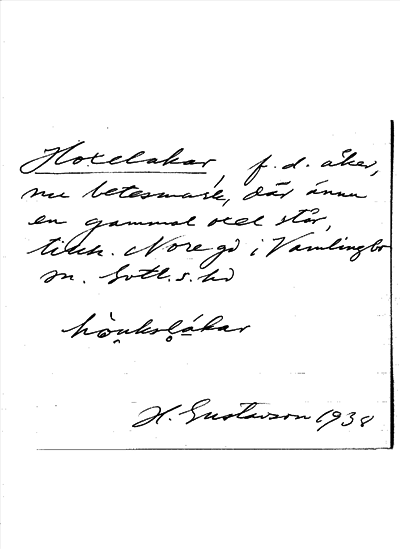 f. d. åker,
nu betesmark, där ännu
en gammal oxel står,
tillh. Nore gd i Vamlingbo
sn. Gotl. s. hd
H. Gustavson 1938